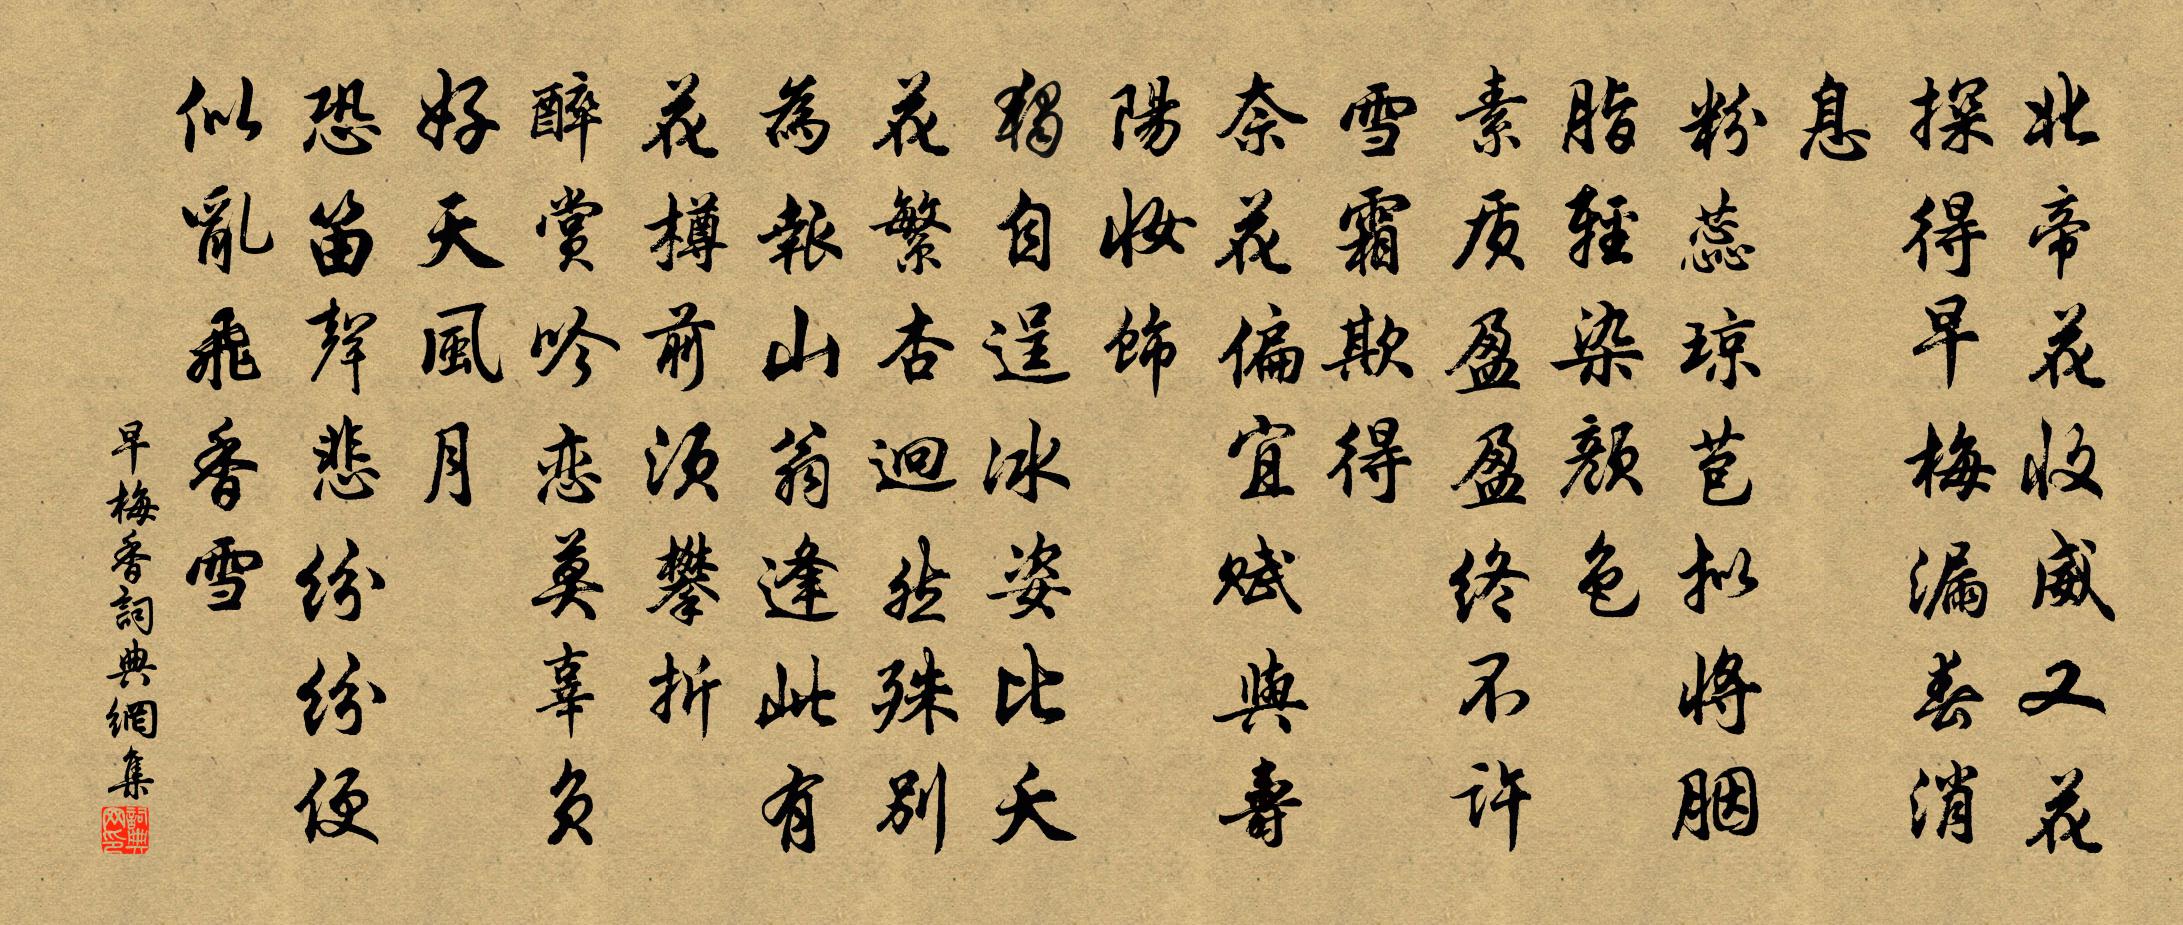 北帝花收威又花
探得早梅漏春消
息
粉蕊琼苞拟將胭
脂輕染顏色
素质盈盈終不許
雪霜欺得
奈花偏宜賦與壽
陽妝飾
獨自逞冰姿比夭
花繁杏迥然殊别
為報山翁逢此有
花樽前須攀折
醉赏吟恋莫辜負
好天風月
恐笛聲悲紛紛便
似亂飛香雪
早梅香詞典網集
詞典
网印